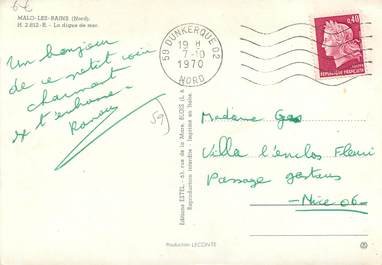 6€
MALO-LES-BAINS (Nord).
H. 2.812-E. - La digue de mer.
Un bonjour
de ce petit coin
charmant
59
Editions ESTEL - 63, rue de la Mare, BLOIS (L. &
Reproduction interdite - Imprimé en
Production LECONTE
59 DUNKERQUE 02
19 H
7-10
1970
NORD
0,40
REPUBLIQUE FRANÇAISE
Madame
Villa l'enclos Fleuri
Passage
Nice 06